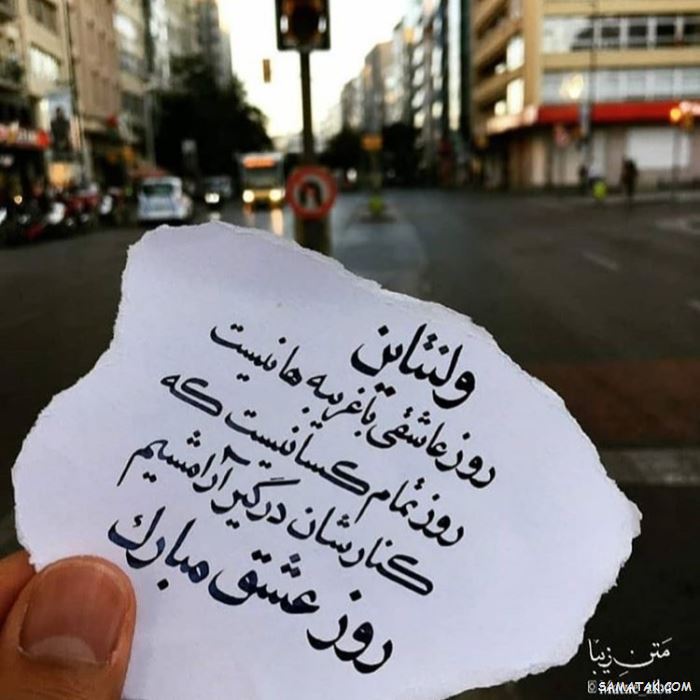 ولنتاین
روز عاشقی با غریبه ها نیست
روز تمام کسانیست که
کنارشان درگیر آرامشیم
روز عشق مبارک
متن زیبا
SAMATAK.COM